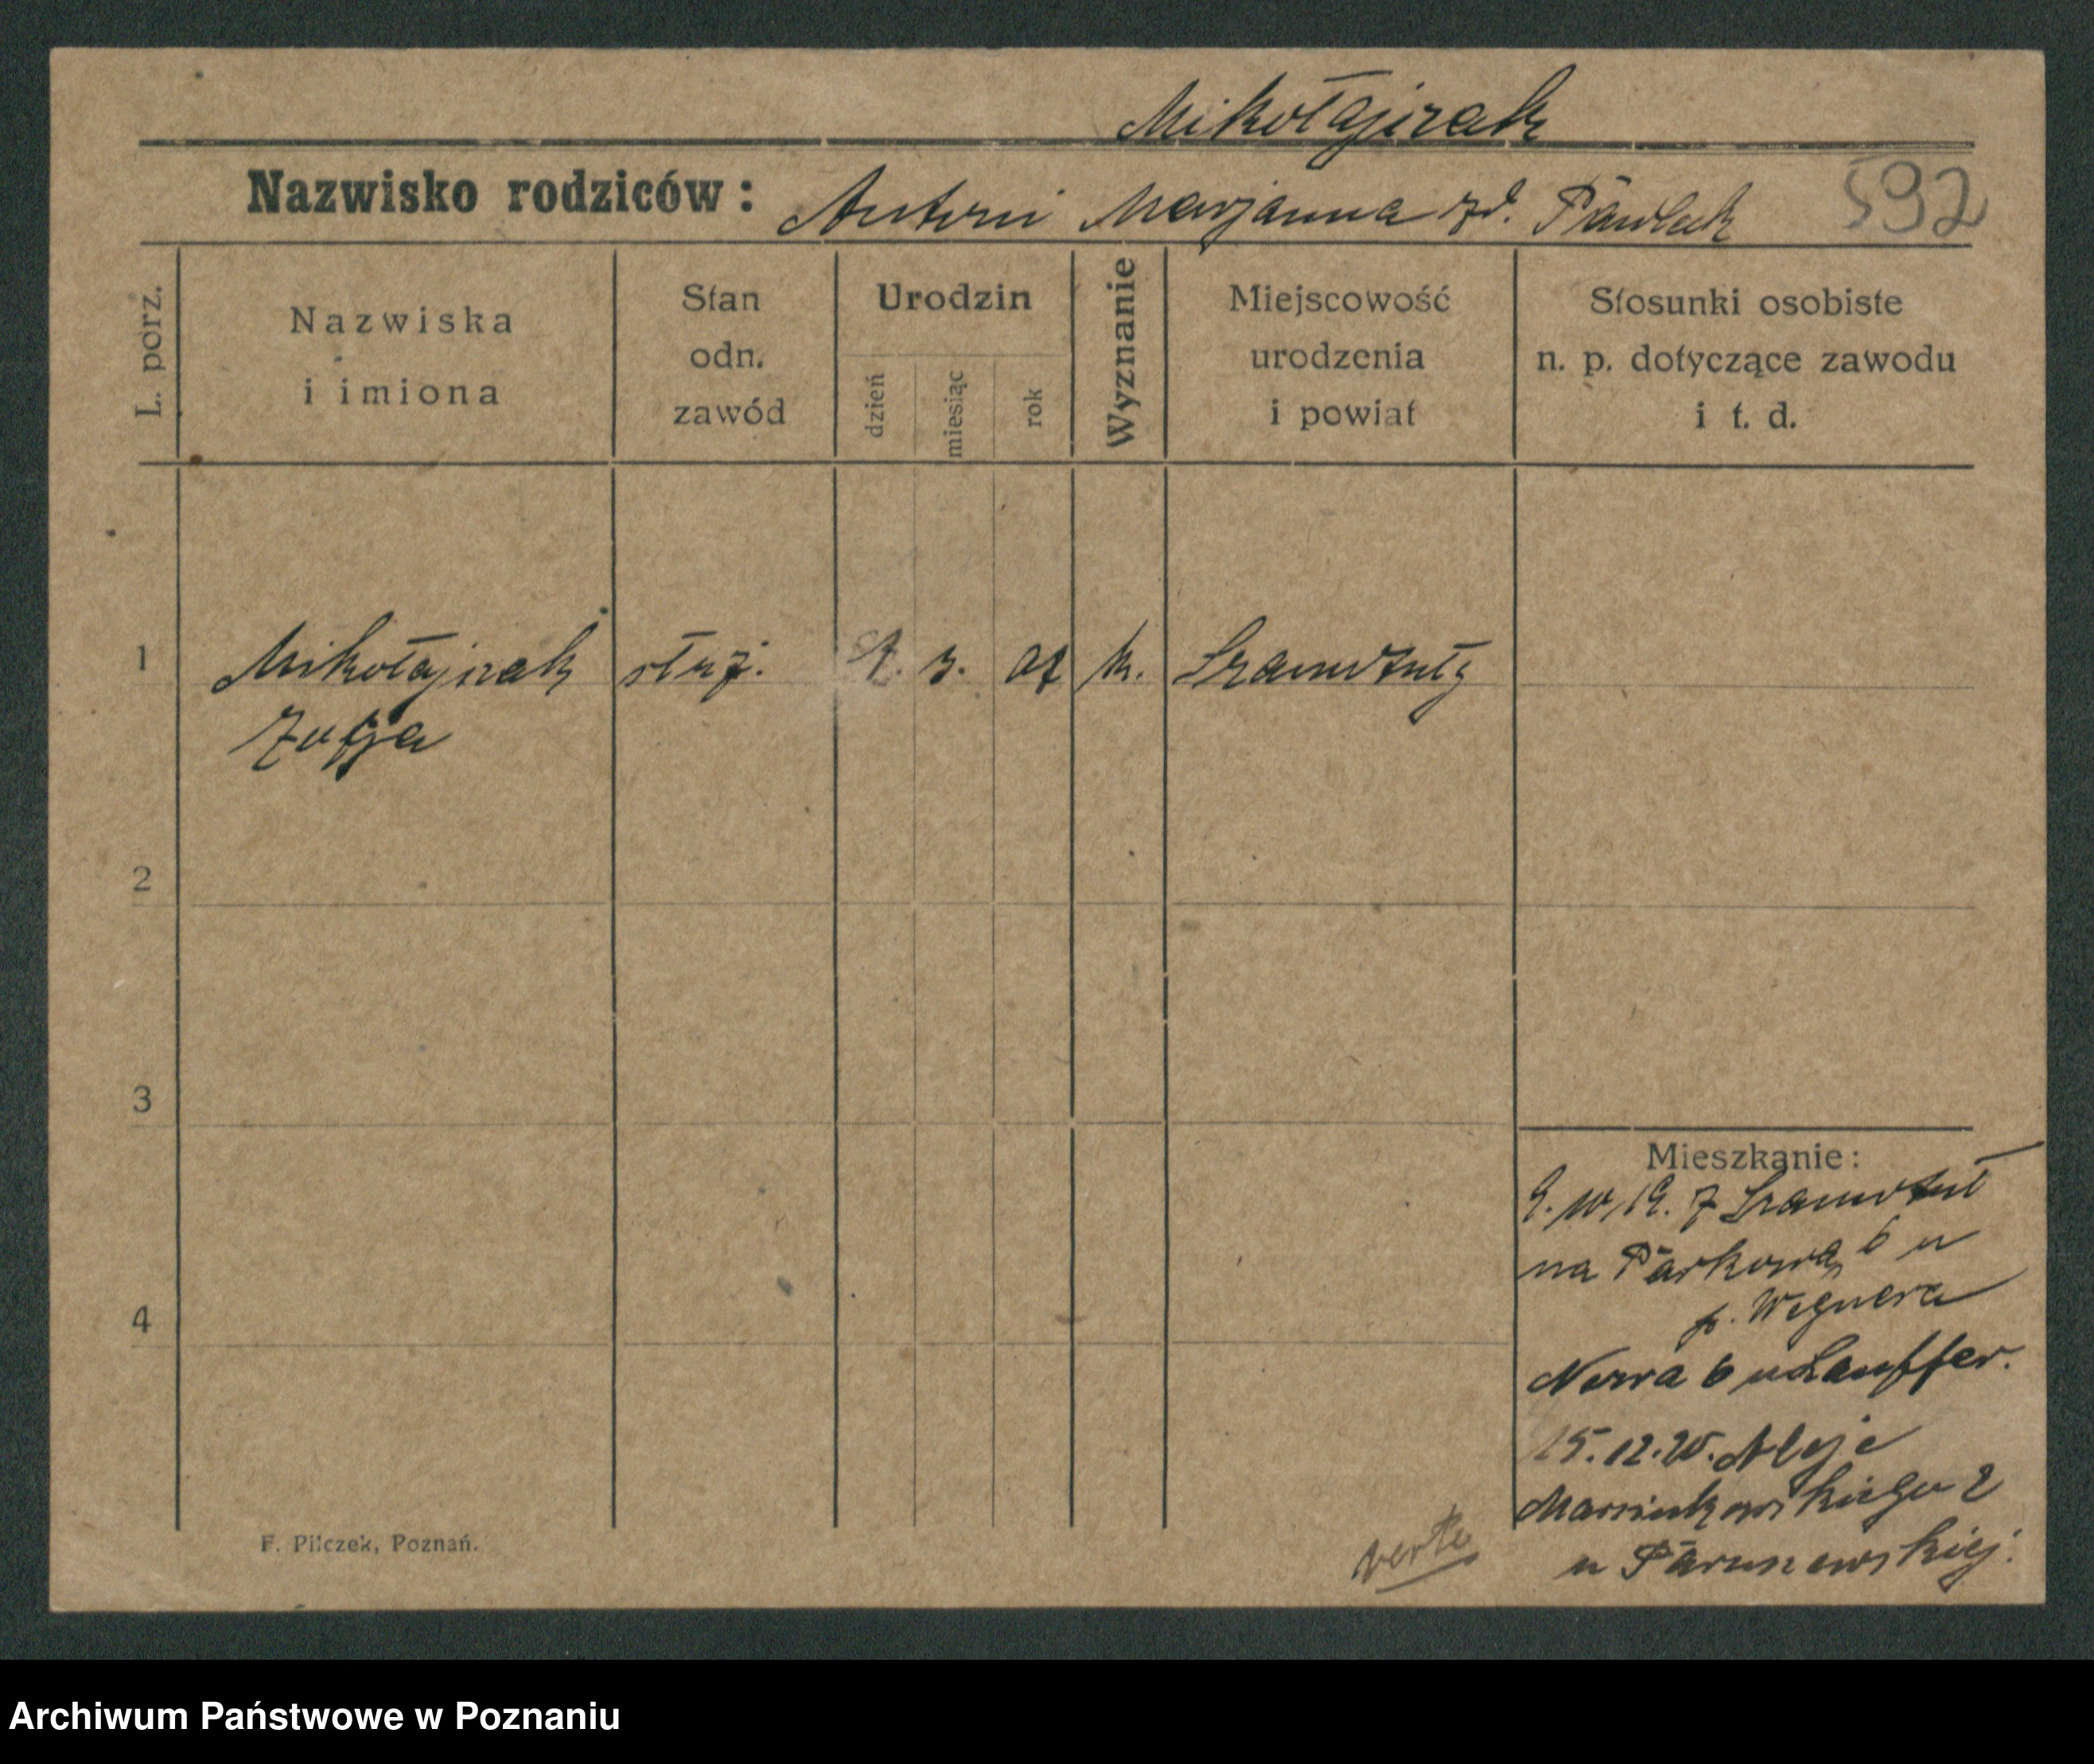 Mikołajczak
Nazwisko rodziców: Antoni Marjanna zd. Pawlak 592
L. porz.
Nazwiska
i imiona
Stan
odn.
zawód
Urodzin
dzień
miesiąc
rok
Wyznanie
Miejscowość
urodzenia
i powiat
Stosunki osobiste
n. p. dotyczące zawodu
i t. d.
1 Mikołajczak służ. k. Szamotuły
Zofja
2
3
4
Mieszkanie:
9.10.19. z Szamotuł
na Parkową 6 u
p. Wegnera
Nowa 6 u Lauffer.
15.12.20. Aleje
Marcinkowskiego 2
u
verte
F. Pilczek, Poznań.
Archiwum Państwowe w Poznaniu